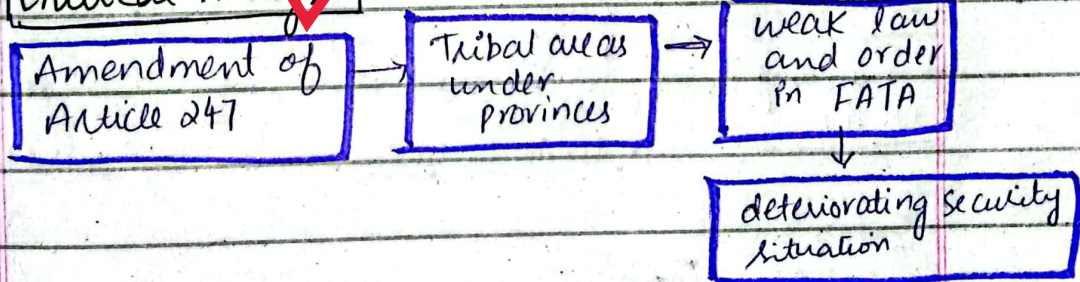 Amendment of
Article 247
Tribal areas
under
provinces
weak law
and order
in FATA
deteriorating security
situation